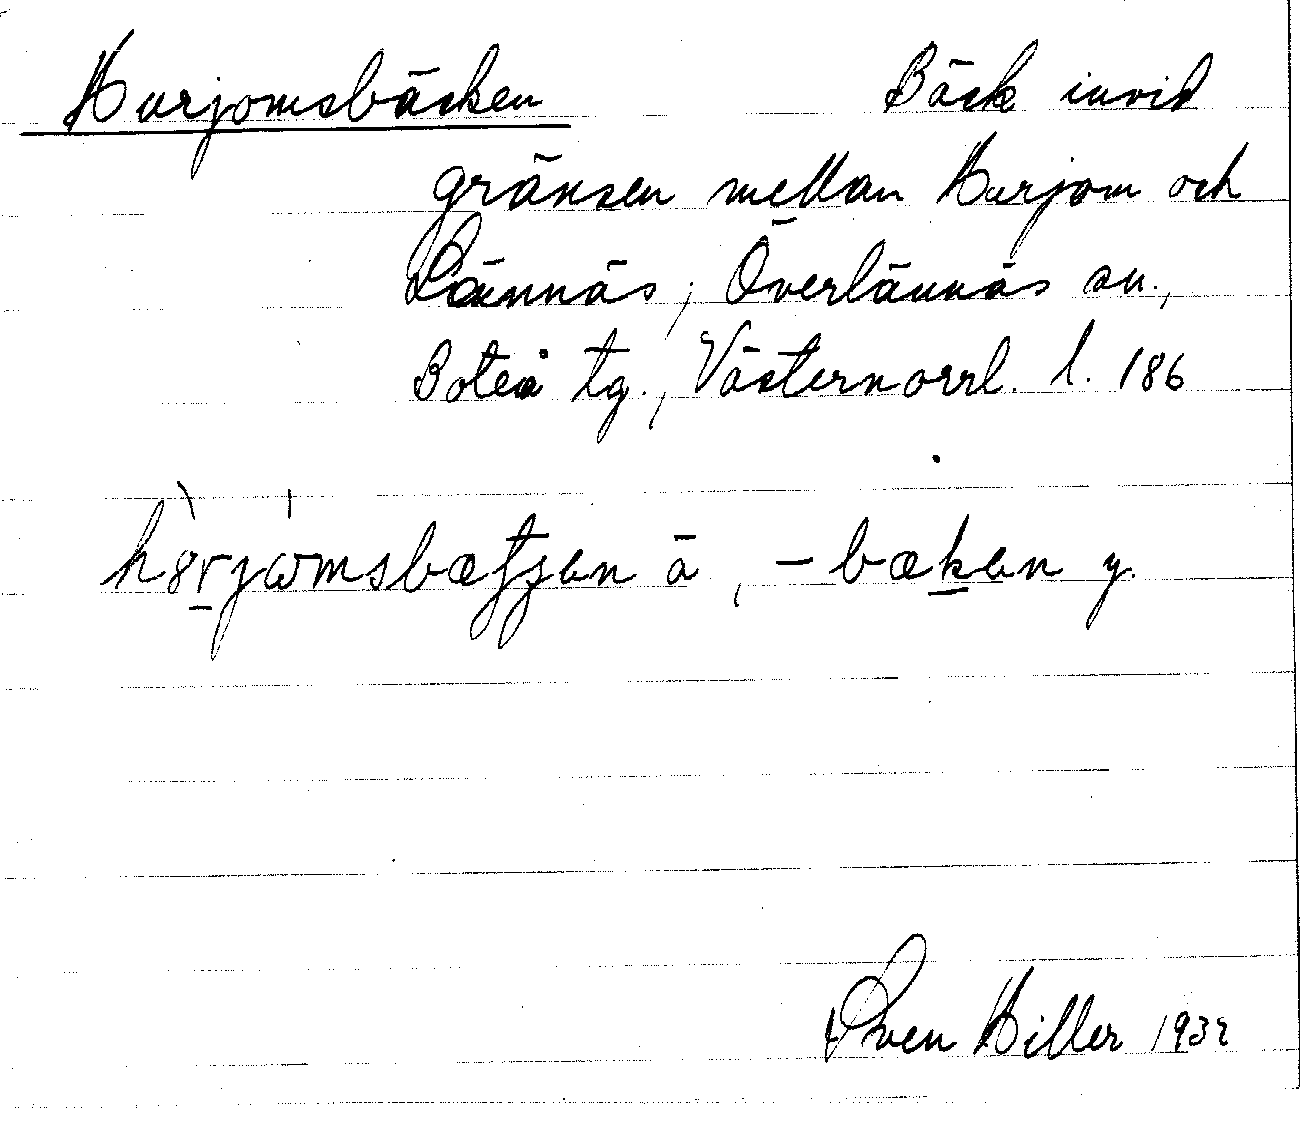 Hurjomsbäcken Bäck invid
gränsen mellan Hurjom och
Lännäs, Överlännäs sn.,
Boteå tg., Västernorrl. l. 186
hørjωmsbæʃʃen ä, -bæken y.
Sven Hiller 1932